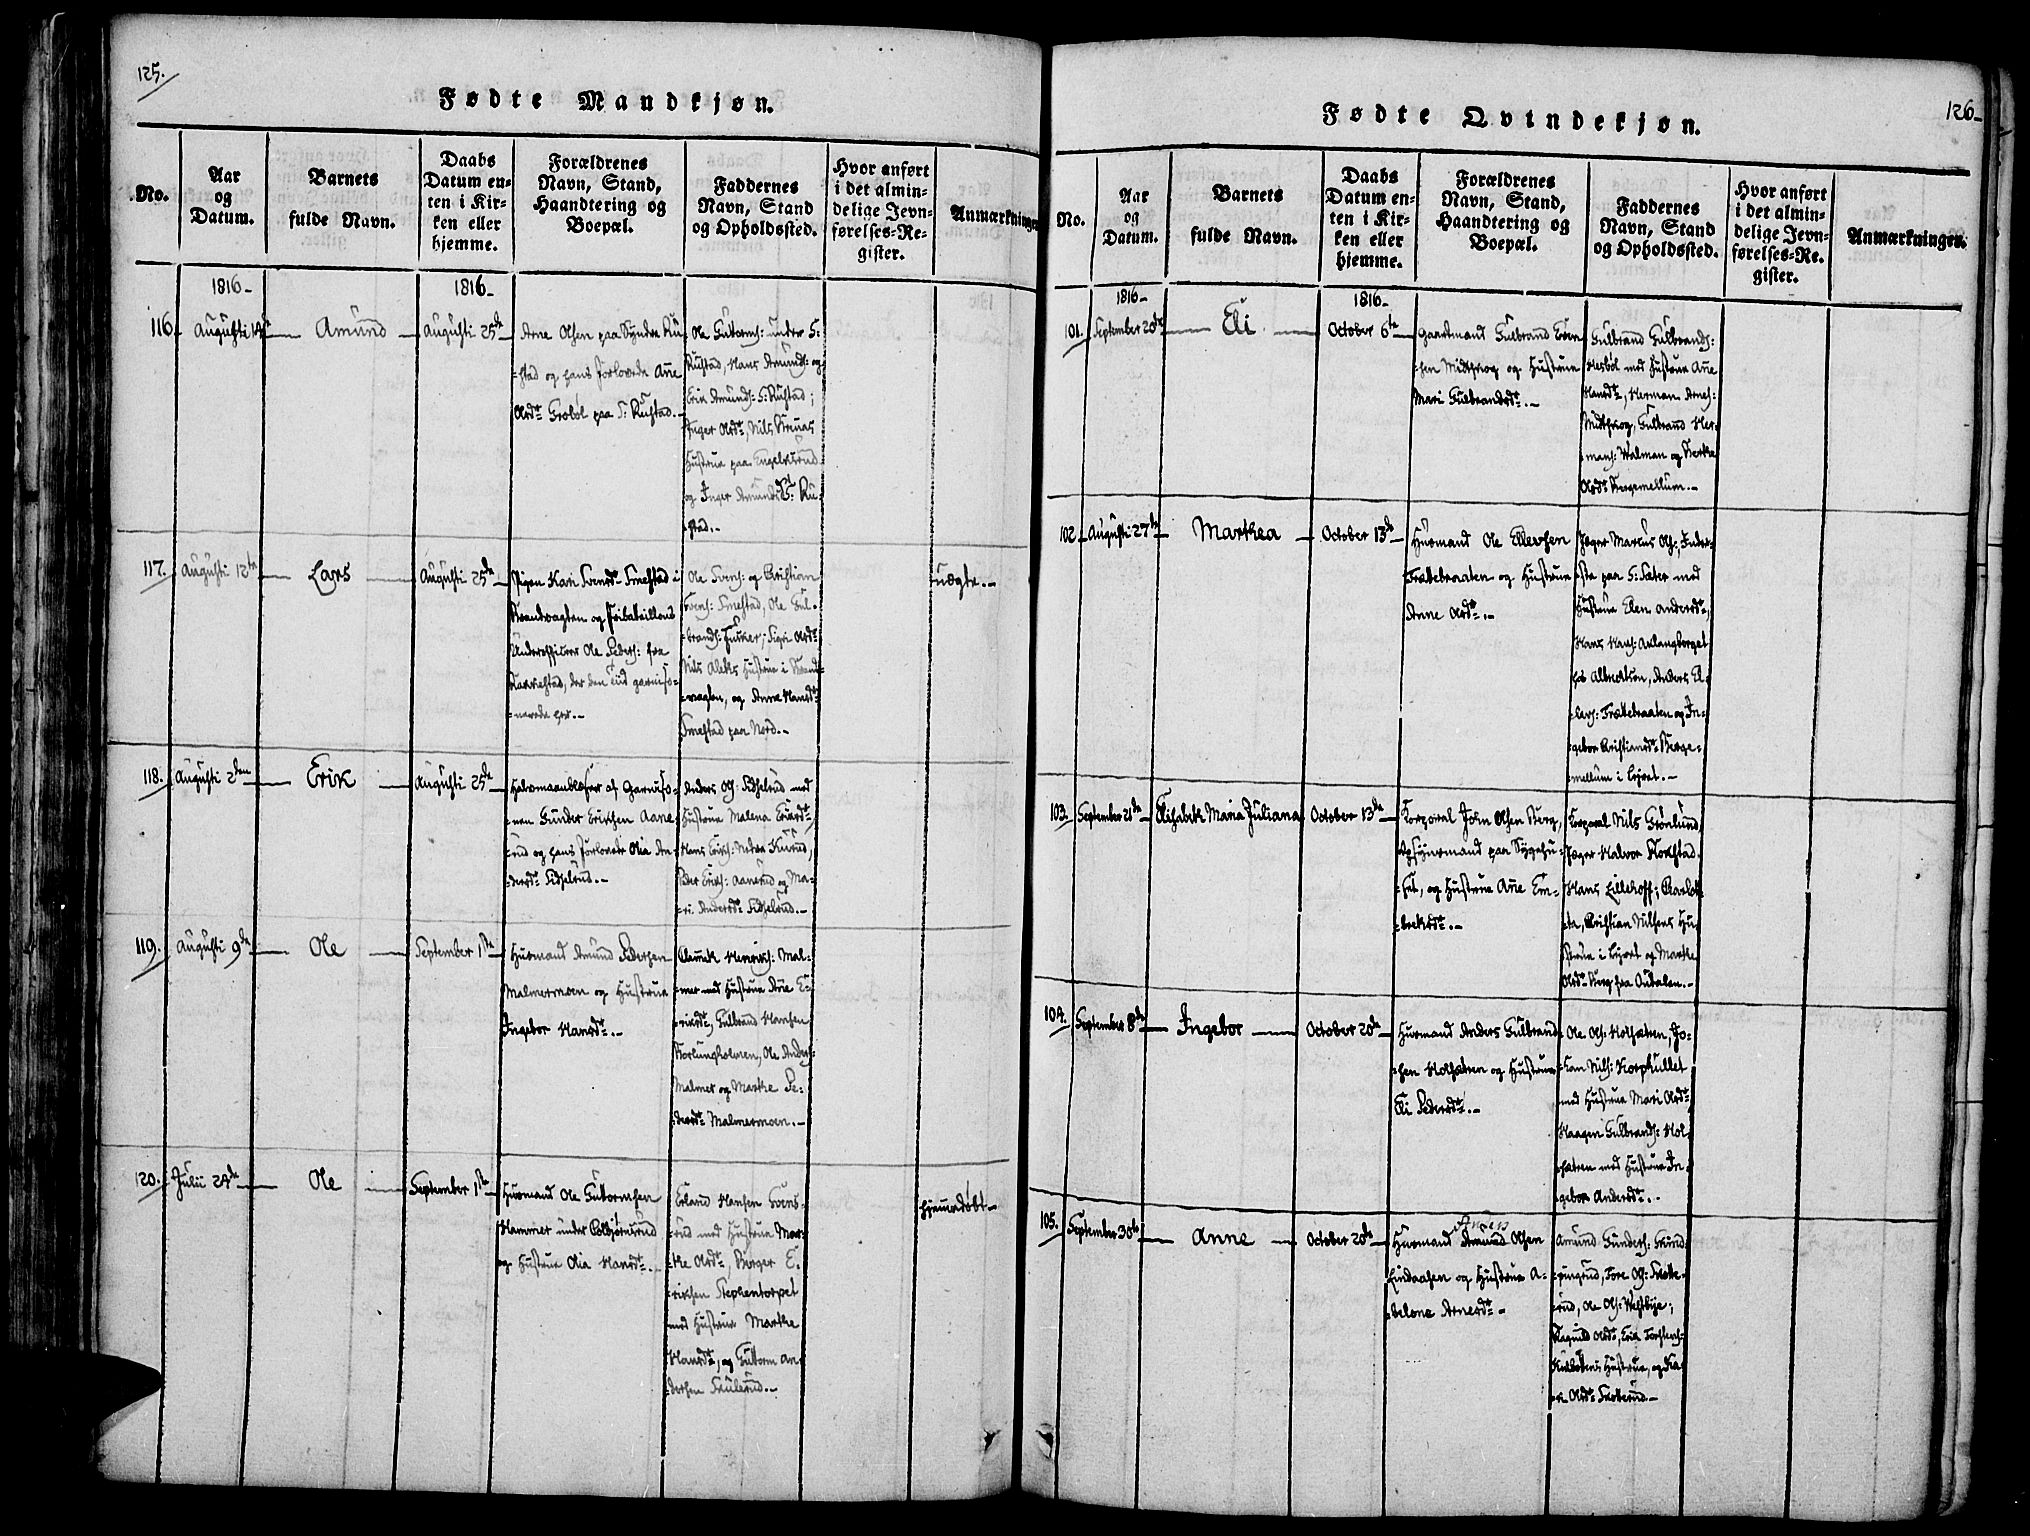 125.
Fødte Mandkjøn.
No.
Aar
og
Datum.
Barnets
fulde Navn.
Daabs
Datum en-
ten i Kir-
ken eller
hjemme.
Forældrenes
Navn, Stand,
Haandtering og
Boepæl.
Faddernes
Navn, Stand
og Opholdssted.
Hvor anført
i det almin-
delige Jevn-
førelses-Re-
gister.
Anmærkninger
1816-
1816-
116.
Augusti
Amund
Augusti 25de
Arne Olsen paa Syndre Ru-
-stad og hans forlovede Ane
Olsdr Grobøl paa S: Rustad.-
Ole Guttorms: under S:
Rustad, Hans Amunds: og
Erik Amunds: S: Rustad;
Inger Olsdr, Nils
Hustrue paa Engelsrud
og Inger Amundsdr S: Ru-
-stad.-
117.
Augusti 12te
Lars
Augusti 25de
Pigen Kari Svensdr Smestad i
Strandvagten og Feltbataillons
Underofficer Ole Peders: fra
der den tid garniso-
-nerede her.-
Ole Svens: og Christian
Svens: Smestad, Ole Gul-
-brands: Olsdr
Nils Hustrue i Strand-
-vagten, og Anne Hansdr
Smestad paa Nord.-
uægte.-
118.
Augusti 2den
Erik
Augusti 25de
af Garniso-
-nen Gunder Erichsen Aane-
-rud og hans forlovede Olia An-
-dersdr Sidselrud.-
Anders Ols: Sidselrud med
Hustrue Malena Eriksdr,
Hans Eriks: Nedre
Peder Eriks: Aanerud og Ma-
-ri Andersdr Sidselrud.-
119.
Augusti 9de
Ole
September 1ste
Huusmand Amund Pedersen
Malmermoen og Hustrue
Ingebor Hansdr.-
Clemet Henriks: Mal-
-mer med Hustrue Ane E-
-riksdr, Gulbrand Hansen
Ole Anders:
Malmer og Marthe Pe-
-dersdr Malmermoen.-
120.
Julii 24de
Ole
September 1ste
Huusmand Ole Guttormsen
Hammer under
og Hustrue Olia Hansdr.-
Erland Hansen Svens-
-rud med Hustrue Mar-
-the Olsdr, Børger E-
-richsen Stephentorpet
med Hustrue Marthe
Hansdr, og Guttorm An-
-dersen Skulerud.-
hjemmedøbt-
126-
Fødte Qvindekjøn.
No.
Aar
og
Datum.
Barnets
fulde Navn.
Daabs
Datum en-
ten i Kir-
ken eller
hjemme.
Forældrenes
Navn, Stand,
Haandtering og
Boepæl.
Faddernes
Navn, Stand
og Opholdssted.
Hvor anført
i det almin-
delige Jevn-
førelses-Re-
gister.
Anmærkninger.
1816-
1816-
101.
September 20de
Eli
October 6te
Gaardmand Gulbrand Even-
-sen Midtskog og Hustrue
Mari Gulbrandsdr.-
Gulbrand Gulbrands:
Hesbøl med Hustrue Ane
Hansdr, Herman Arnes:
Midtskog, Gulbrand Her-
-mans: Walman og Berthe
Olsdr Bergemellum.-
102.
Augusti 27de
Marthea
October 13de
Huusmand Ole Ellevsen
Frættebraaten og Hustrue
Anne Olsdr.-
Jæger Marcus Ols: Inder-
paa S: Sæter med
Hustrue Elen Andersdr,
Hans Hans: Aklangberget
hos Albrechtson, Anders El-
-levs: Frættebraaten og In-
-gebor Christiansdr Berge-
-mellum i Leyret.-
103.
September 21de
Elisabeth Maria Juliana
October 13de
Korporal John Olsen Berg,
Opsynsmand paa Sygehu-
-set, og Hustrue Ane Em-
-brektsdr.-
Korporal Nils Grønlund,
Jæger Halvor Kokstad,
Hans Lillehoff; Charlot-
-te, Christian Nilsens Hu-
-strue i Leyret og Marthe
Olsdr Berg fra Oudalen.-
104.
September 8de
Ingebor
October 20de
Huusmand Anders Gulbrand-
-sen Holsætren og Hustrue
Eli Pedersdr.-
Ole Ols: Holsætren, Jo-
-han Nils: Korphullet
med Hustrue Mari Olsdr,
Haagen Gulbrands: Hol-
-sætren med Hustrue In-
-gebor Andersdr.-
105.
September 30te
Anne
October 20de
Anders
Huusmand Amund Olsen
Lindaasen og Hustrue A-
-belone Arnesdr.-
Amund Gunders: Grind-
Tore Ols: Skotte-
-rud, Ole Ols: Westbye;
Ragnild Olsdr, Erik Torstens:
Hustrue, og Ka-
-ri Olsdr Skotterud.-